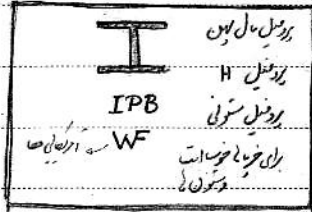 پروفیل بال پهن
پروفیل H
IPB پروفیل ستونی
WF ← آمریکایی ها
برای خرپاها خوب است
و ستون ها